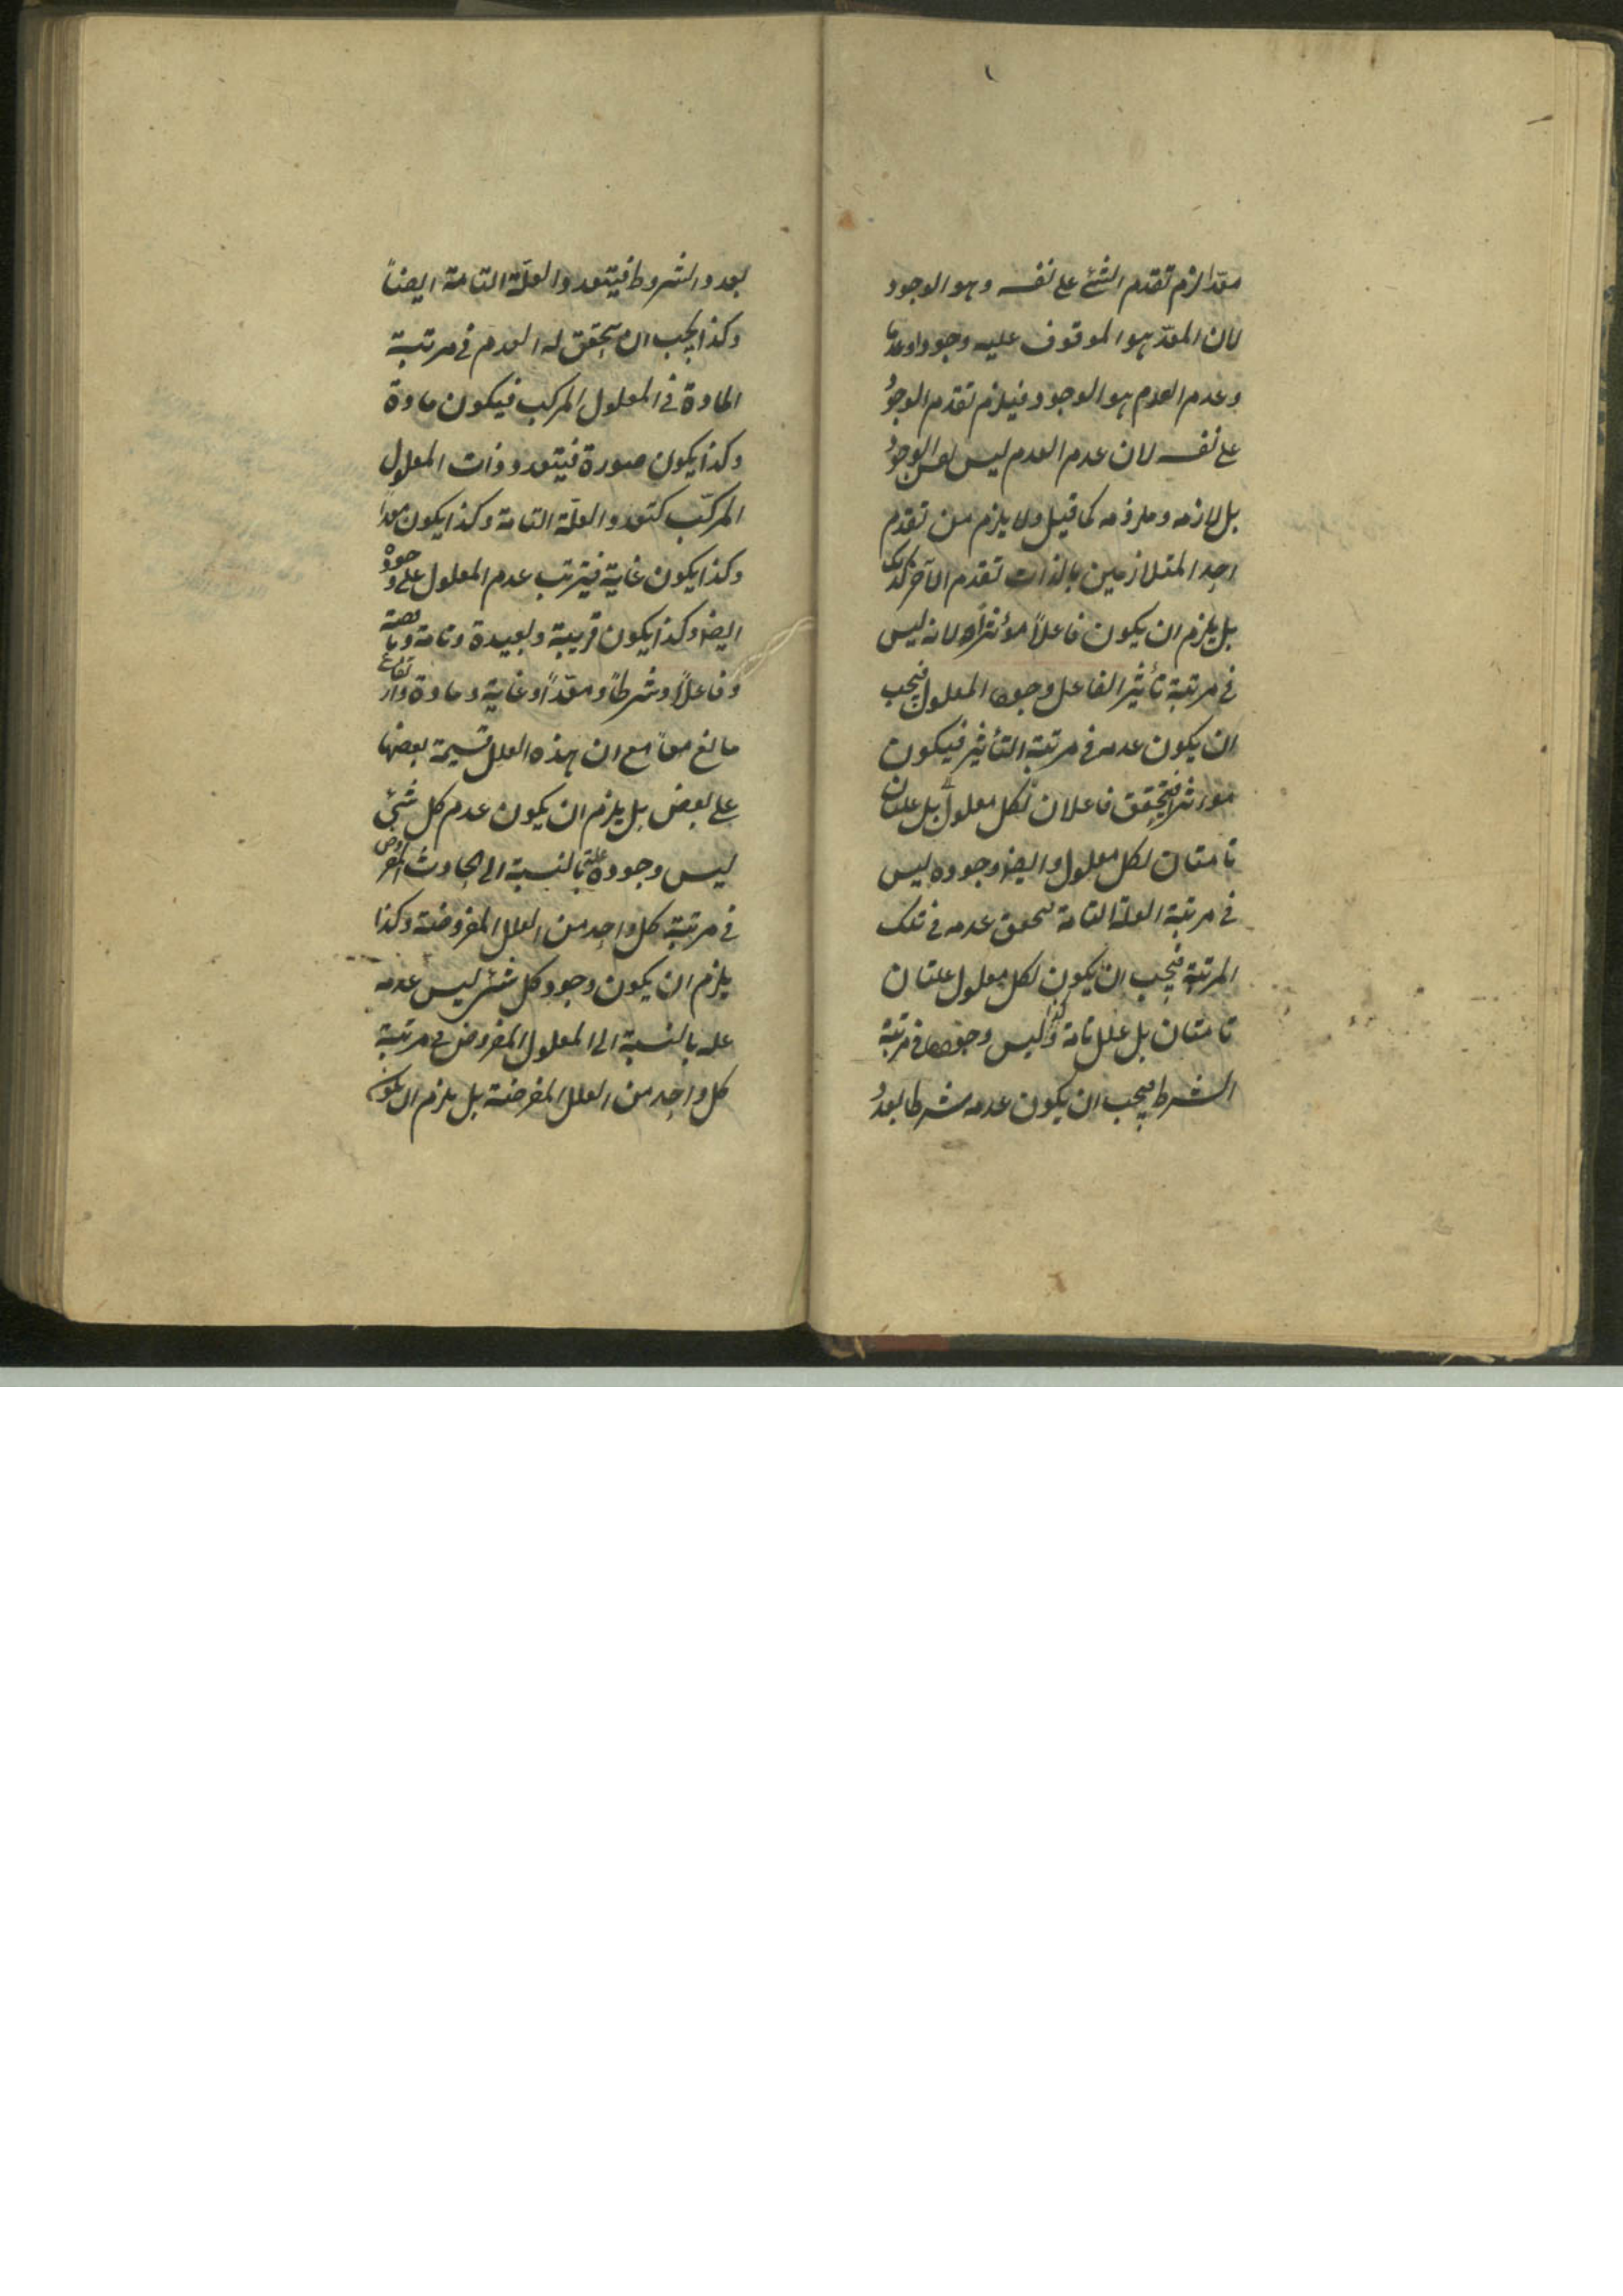 معدا لزم تقدم الشئ على نفسه وهو الوجود
لان المعد هو الموقوف عليه وجودا وعدما
وعدم العدم هو الوجود فيلزم تقدم الوجود
على نفسه لان عدم العدم ليس نفس الوجود
بل لازمه وملزومه كما قيل ولا يلزم من تقدم
احد المتلازمين بالذات تقدم الآخر كذلك
بل يلزم ان يكون فاعلاً مؤثراً لانه ليس
فى مرتبة تأثير الفاعل وجود المعلول فيجب
ان يكون عدمه فى مرتبة التأثير فيكون
مؤثرا فيتحقق فاعلان لكل معلول بل علتان
تامتان لكل معلول وايضا وجوده ليس
فى مرتبة العلة التامة فتحقق عدمه فى تلك
المرتبة فيجب ان يكون لكل معلول علتان
تامتان بل علل تامة وليس وجوده فى مرتبة
الشرط فيجب ان يكون عدمه شرطا بعد
بعدد الشروط فيتعدد العلّة التامة ايضاً
وكذا يجب ان يتحقق له العدم فى مرتبة
المادة فى المعلول المركب فيكون مادة
وكذا يكون صورة فيتعدد ذات المعلول
المركّب كتعدد العلّة التامة وكذا يكون معداً
وكذا يكون غاية فيترتب عدم المعلول على وجوده
ايضا وكذا يكون قريبة وبعيدة وتامة وناقصة
وفاعلاً وشرطاً ومعدّاً وغاية ومادة وارتفاع
مانع معاً مع ان هذه العلل قسيمة بعضها
على بعض بل يلزم ان يكون عدم كل شئ
ليس وجوده علة بالنسبة الى الحادث المفروض
فى مرتبة كل واحد من العلل المفروضة وكذا
يلزم ان يكون وجود كل شئ ليس عدمه
علة بالنسبة الى المعلول المفروض فى مرتبة
كل واحد من العلل المفرضة بل يلزم ان يكون